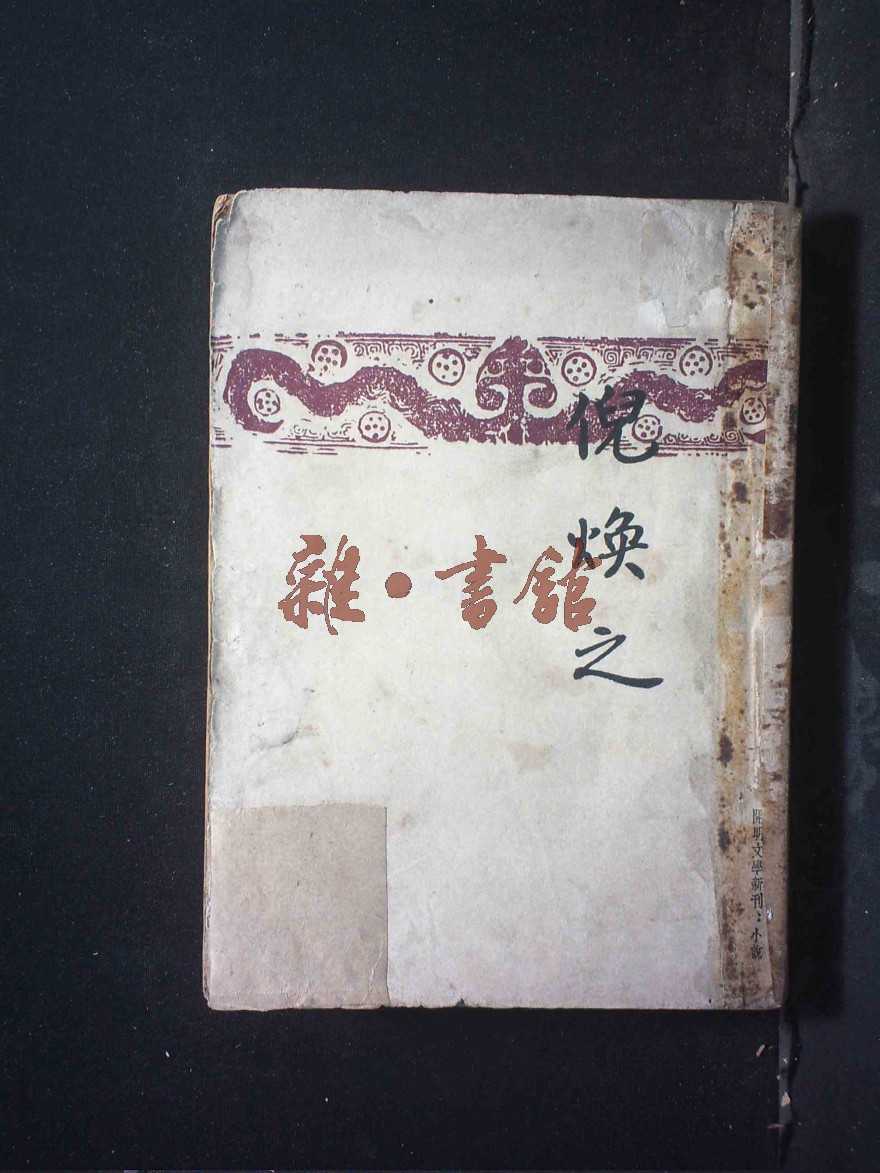 倪煥之
雜·書館
開明文學新刊：小說